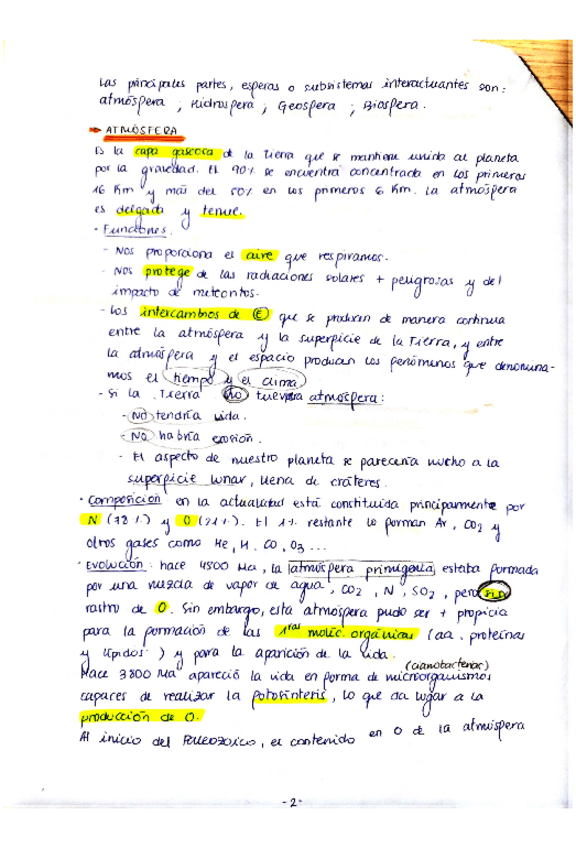 Las principales partes, esferas o subsistemas interactuantes son:
atmósfera ; Hidrosfera ; Geosfera ; Biosfera.
→ ATMÓSFERA
Es la capa gaseosa de la Tierra que se mantiene unida al planeta
por la gravedad. El 90% se encuentra concentrada en los primeros
16 Km y más del 50% en los primeros 6 Km. La atmósfera
es delgada y tenue.
- Funciones.
- Nos proporciona el aire que respiramos.
- Nos protege de las radiaciones solares + peligrosas y del
impacto de meteoritos.
- Los intercambios de E que se producen de manera continua
entre la atmósfera y la superficie de la Tierra, y entre
la atmósfera y el espacio producen los fenómenos que denomina-
mos el tiempo y el clima
- Si la Tierra no tuviera atmósfera:
- NO tendría vida.
- NO habría erosión.
- El aspecto de nuestro planeta se parecería mucho a la
superficie lunar, llena de cráteres.
· Composición en la actualidad está constituida principalmente por
N (78%) y O (21%). El 1% restante lo forman Ar, CO2 y
otros gases como He, H, CO, O3 ...
· Evolución: hace 4500 Ma, la atmósfera primigenia estaba formada
por una mezcla de vapor de agua, CO2, N, SO2, pero sin
rastro de O. Sin embargo, esta atmósfera pudo ser + propicia
para la formación de las 1ras moléc. orgánicas (aa, proteínas
y lípidos) y para la aparición de la vida.
(cianobacterias)
Hace 3800 Ma apareció la vida en forma de microorganismos
capaces de realizar la fotosíntesis, lo que da lugar a la
producción de O.
Al inicio del Paleozoico, el contenido en O de la atmósfera
- 2 -